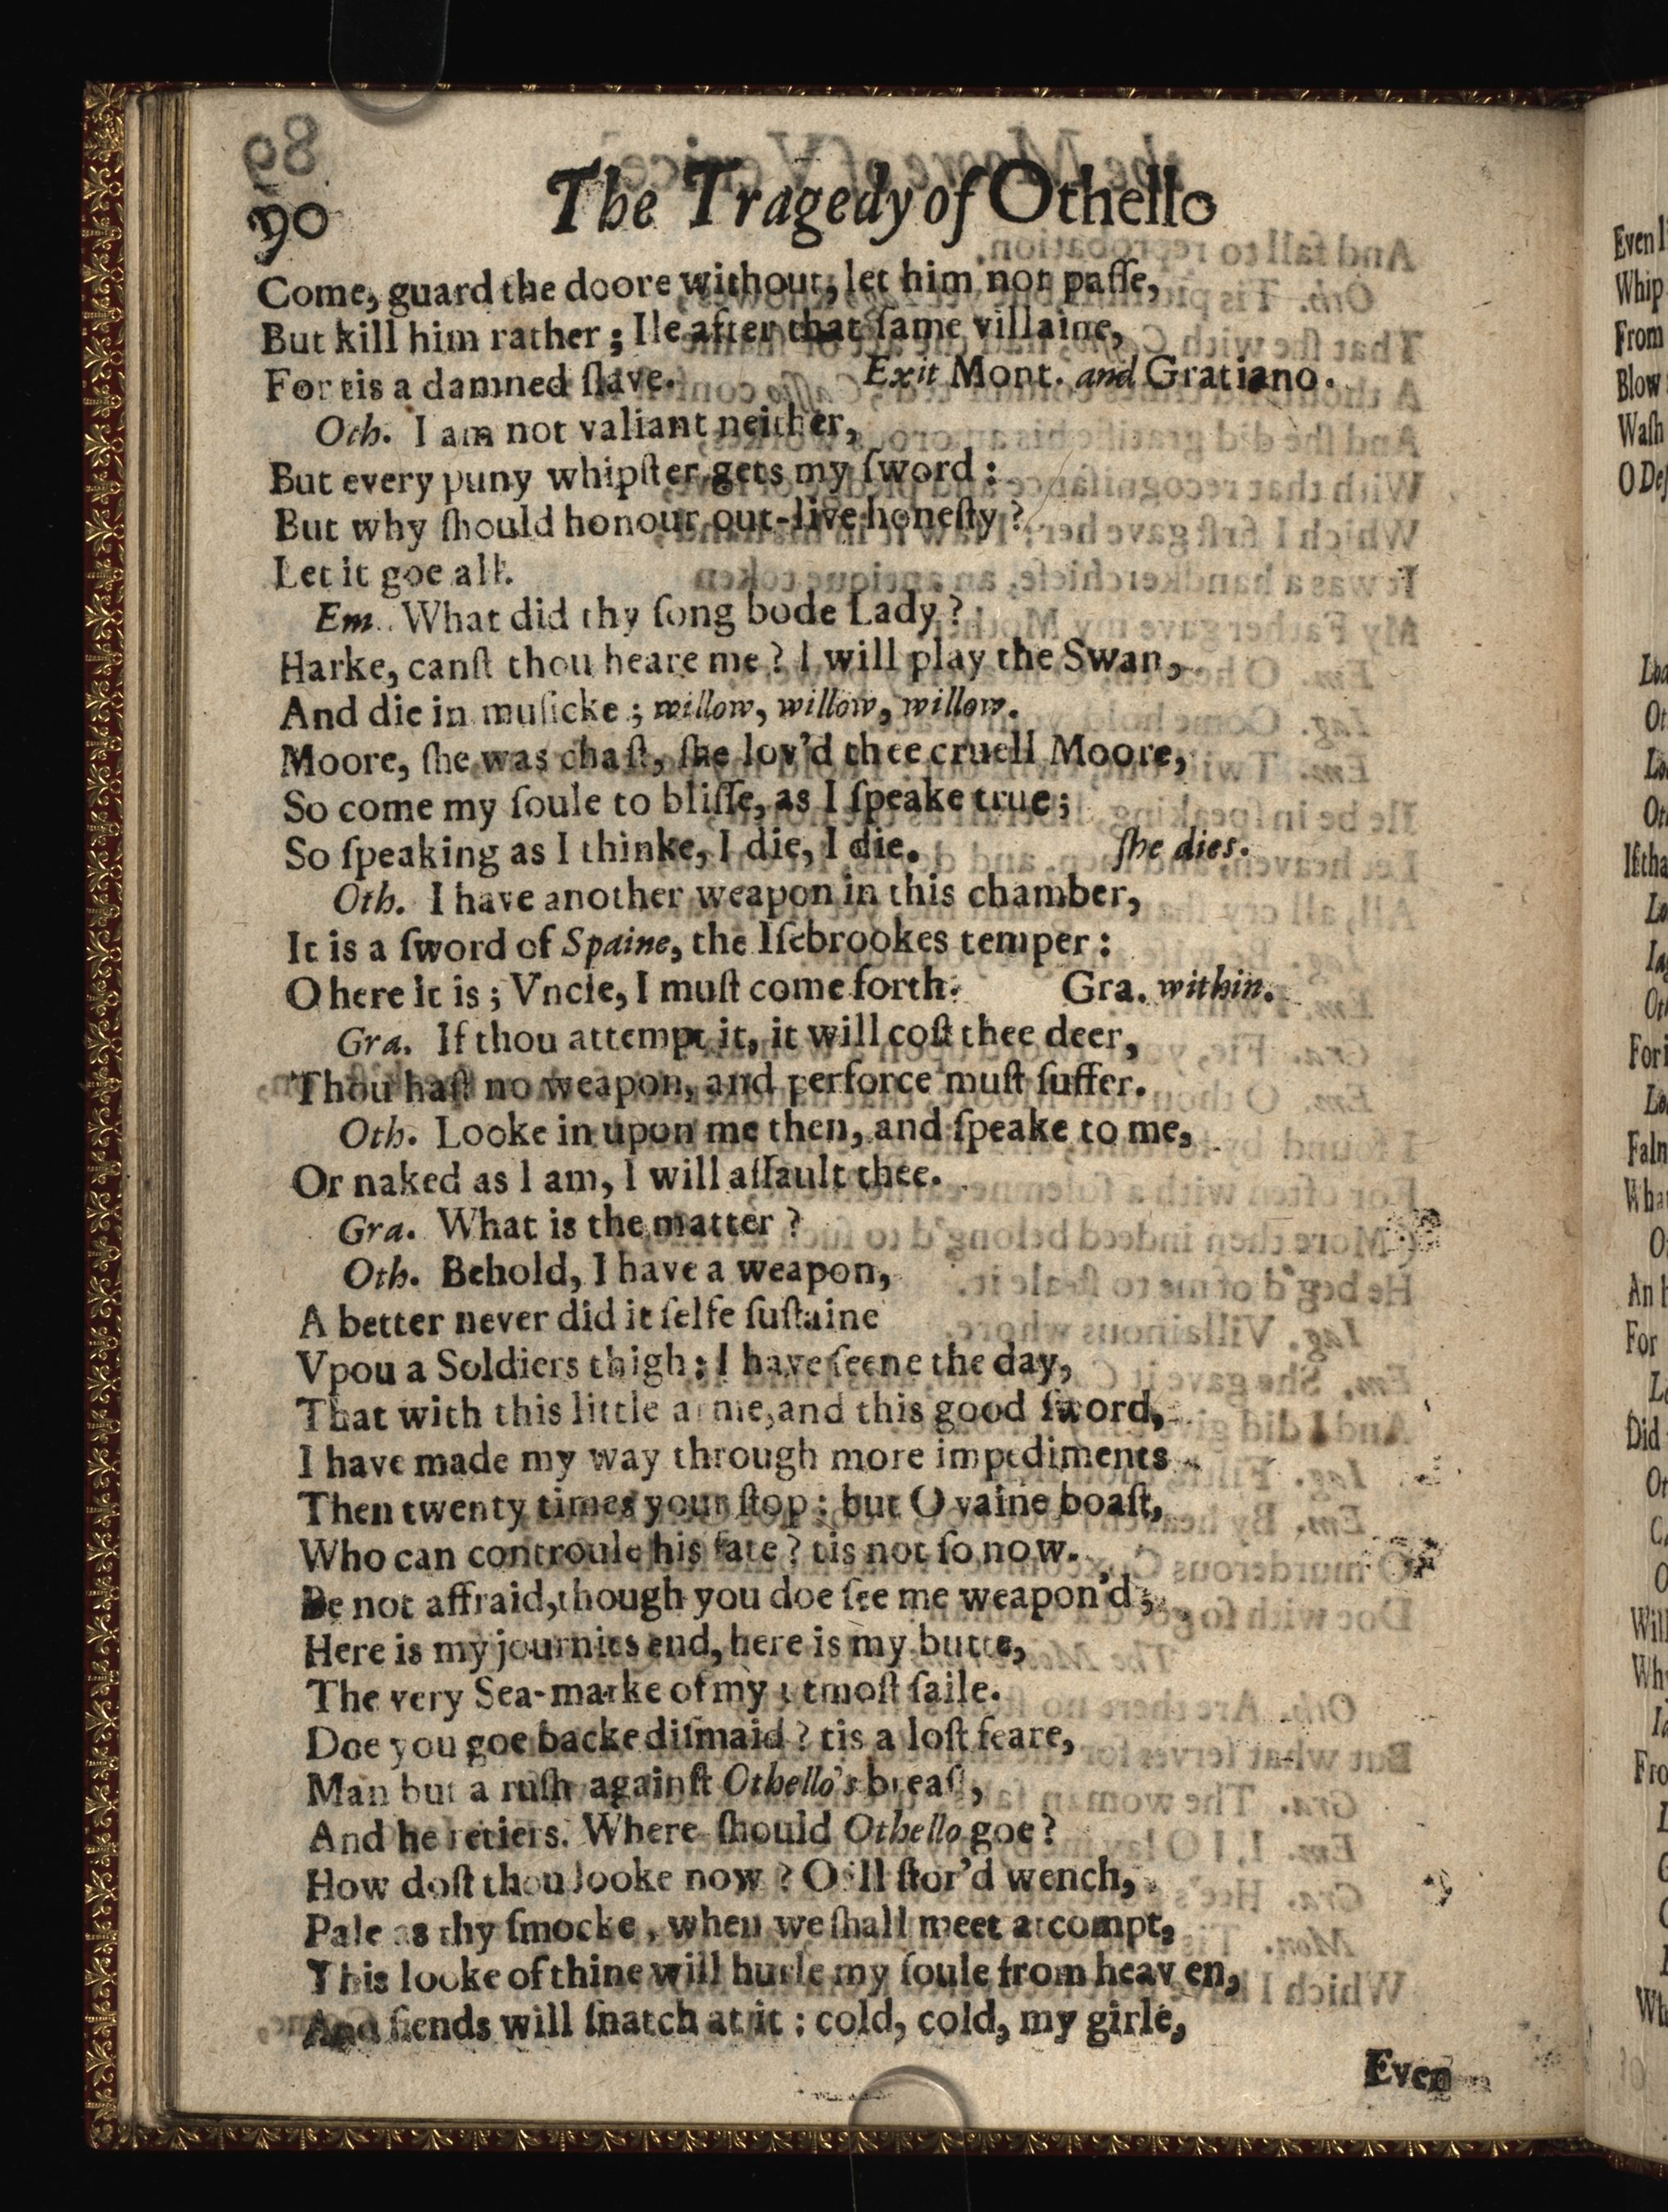 90
The Tragedy of Othello
Come, guard the doore without, let him not paſſe,
But kill him rather; Ile after that ſame villaine,
For tis a damned ſlave. Exit Mont. and Gratiano.
Oth. I am not valiant neither,
But every puny whipſter gets my ſword:
But why ſhould honour out-live honeſty?
Let it goe all.
Em. What did thy ſong bode Lady?
Harke, canſt thou heare me? I will play the Swan,
And die in muſicke; willow, willow, willow.
Moore, ſhe was chaſt, ſhe lov'd thee cruell Moore,
So come my ſoule to bliſſe, as I ſpeake true;
So ſpeaking as I thinke, I die, I die. ſhe dies.
Oth. I have another weapon in this chamber,
It is a ſword of Spaine, the Iſebrookes temper:
O here it is; Vncle, I muſt come forth. Gra. within.
Gra. If thou attempt it, it will coſt thee deer,
Thou haſt no weapon, and perforce muſt ſuffer.
Oth. Looke in upon me then, and ſpeake to me,
Or naked as I am, I will aſſault thee.
Gra. What is the matter?
Oth. Behold, I have a weapon,
A better never did it ſelfe ſuſtaine
Vpou a Soldiers thigh: I have ſeene the day,
That with this little arme, and this good ſword,
I have made my way through more impediments
Then twenty times your ſtop: but O vaine boaſt,
Who can controule his fate? tis not ſo now.
Be not affraid, though you doe ſee me weapon'd;
Here is my journies end, here is my butte,
The very Sea-marke of my utmoſt ſaile.
Doe you goe backe diſmaid? tis a loſt feare,
Man but a ruſh againſt Othello's breaſt,
And he retiers. Where ſhould Othello goe?
How doſt thou looke now? O ill ſtor'd wench,
Pale as thy ſmocke, when we ſhall meet at compt,
This looke of thine will hurle my ſoule from heaven,
And fiends will ſnatch at it: cold, cold, my girle,
Even